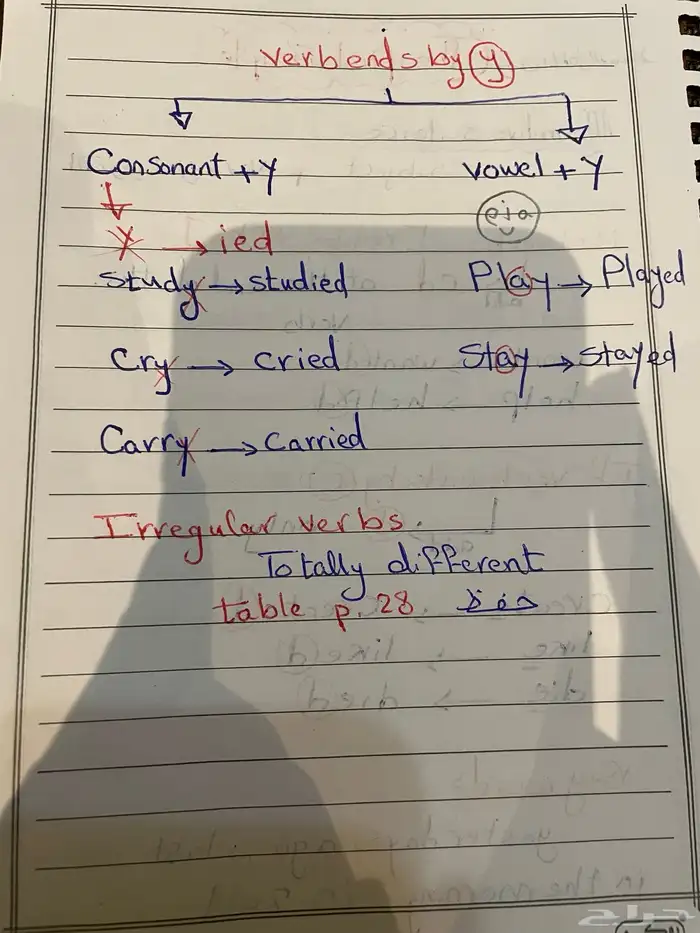 verb ends by y
Consonant + y
vowel + y
eio
y → ied
study → studied
Play → Played
Cry → cried
Stay → stayed
Carry → Carried
Irregular verbs.
Totally different
table p. 28 حفظ
حراج